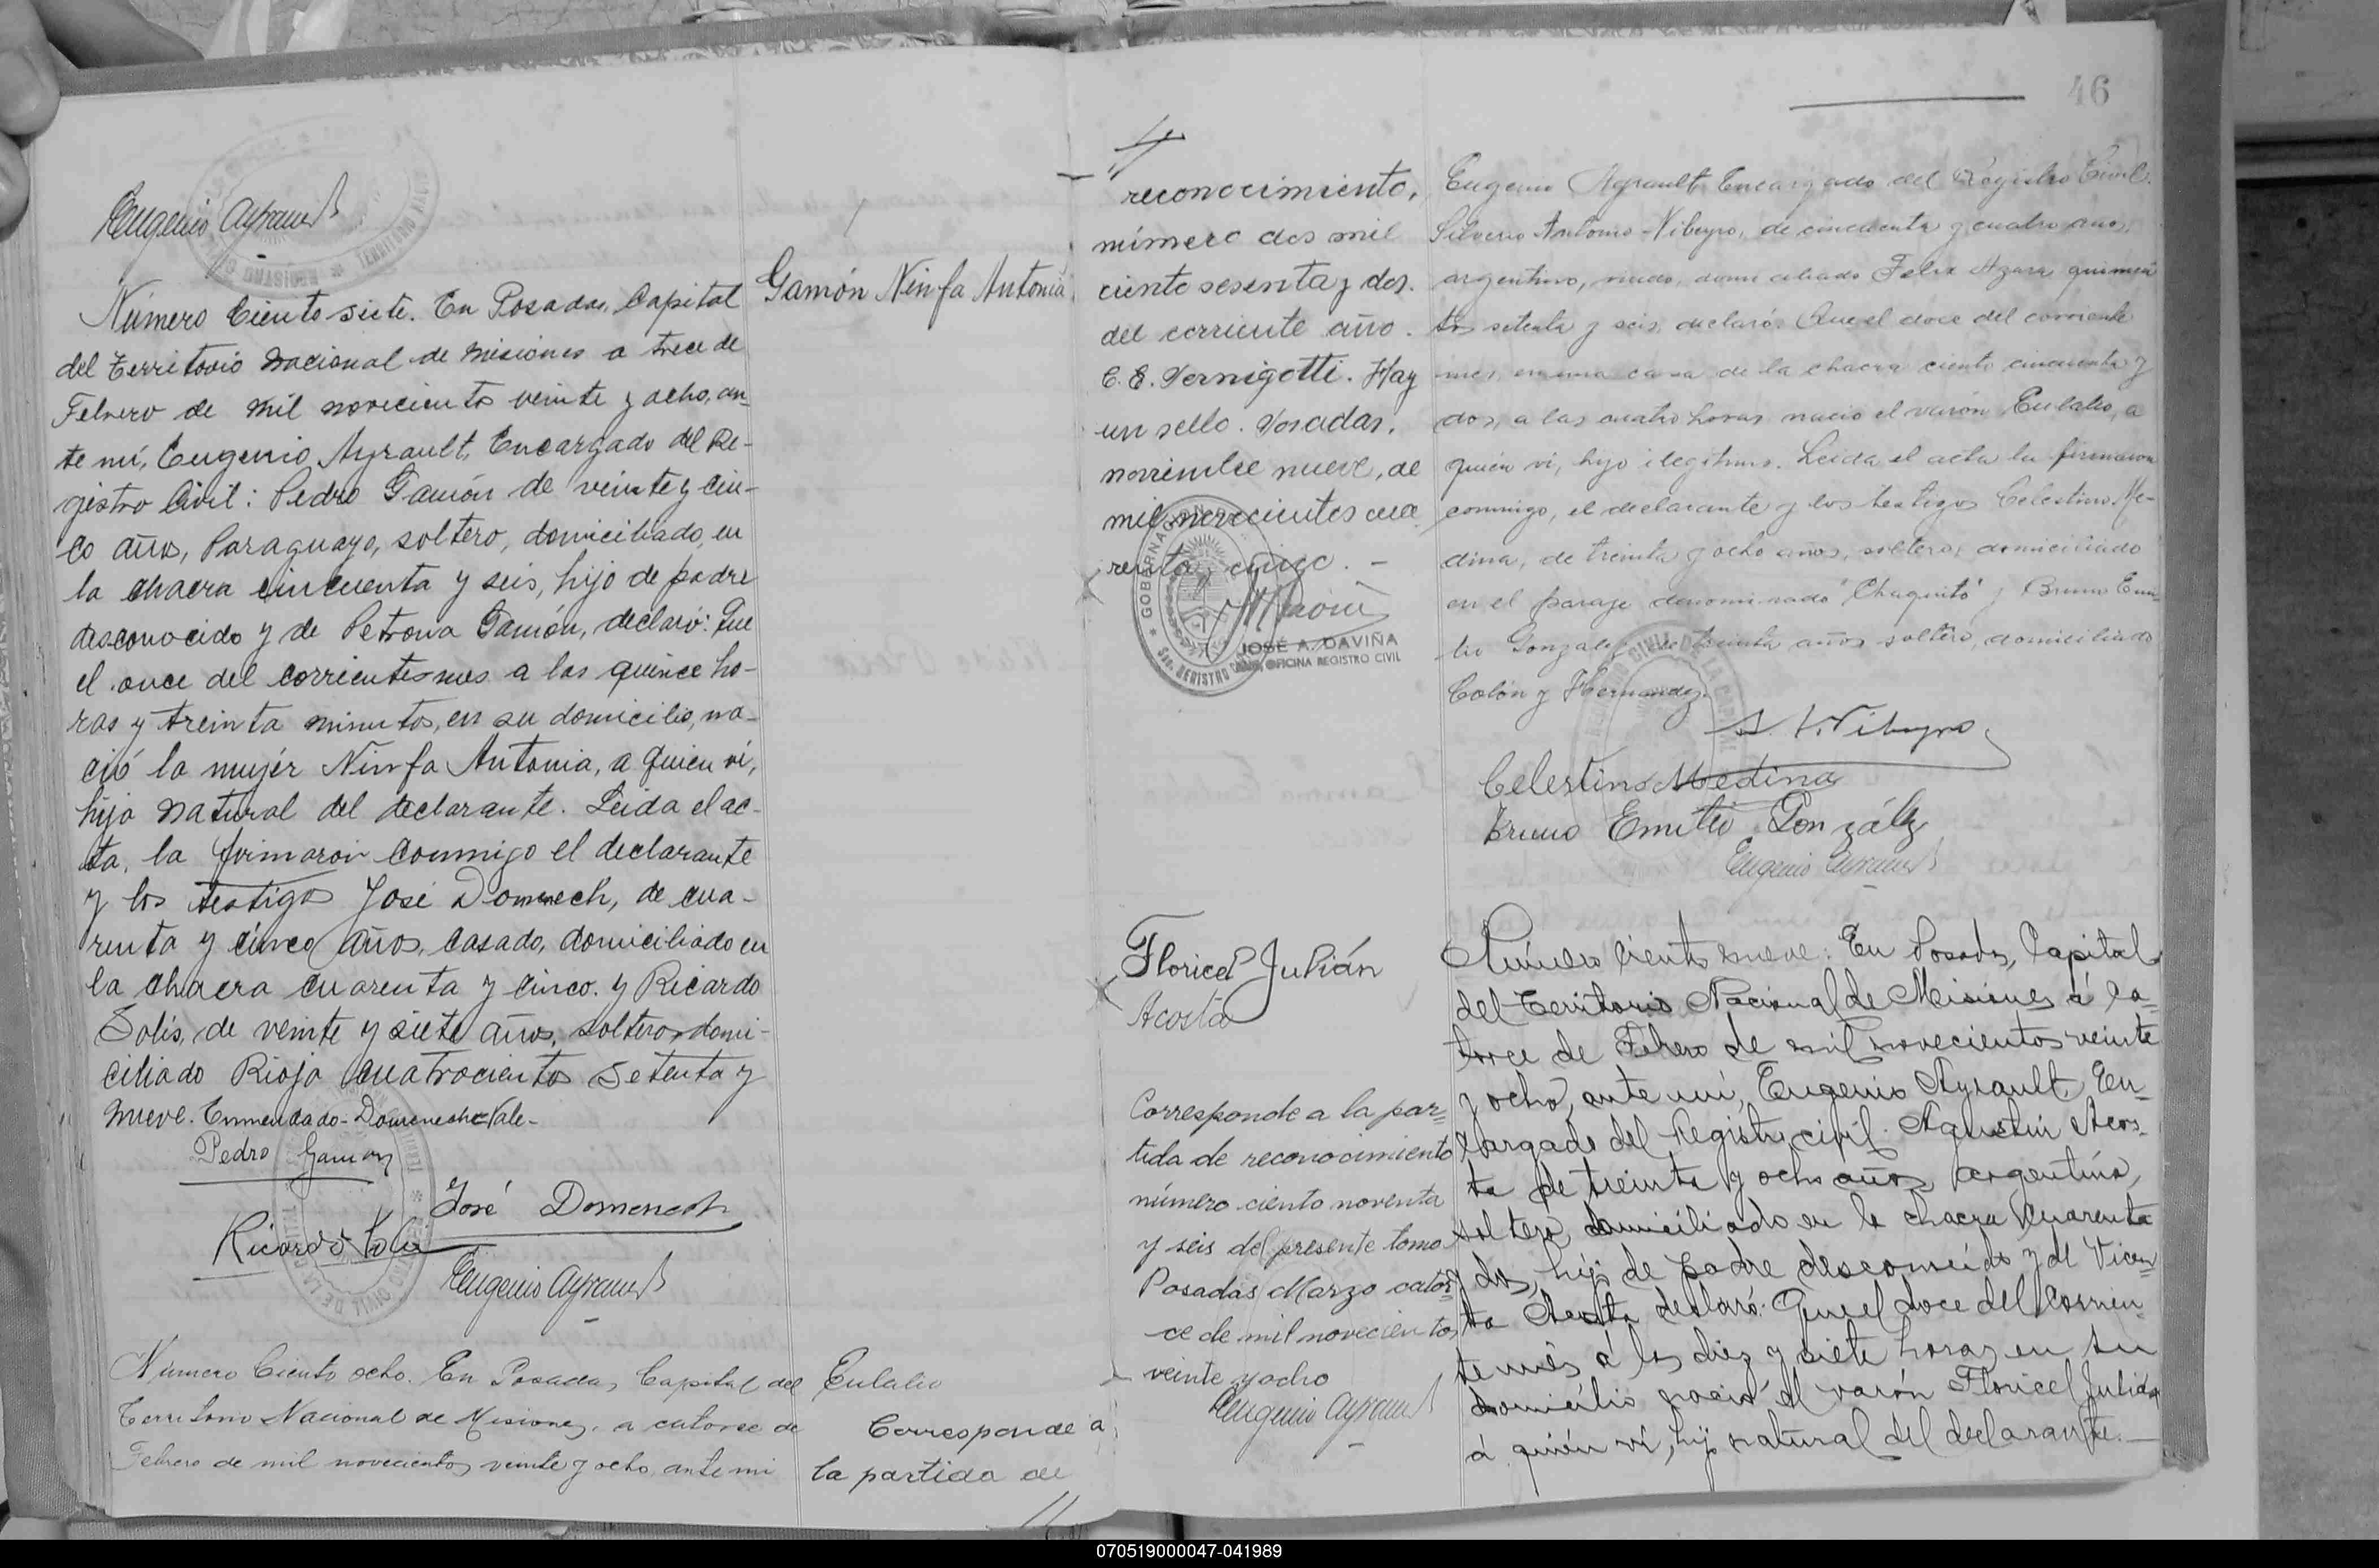 Eugenio Ayrault
Número Ciento siete. En Posadas, Capital
del Territorio Nacional de Misiones a trece de
Febrero de mil novecientos veinte y ocho, an-
te mí, Eugenio Ayrault, Encargado del Re-
gistro Civil: Pedro Gamón de veinte y cin-
co años, Paraguayo, soltero, domiciliado, en
la chacra cincuenta y seis, hijo de padre
desconocido y de Petrona Gamón, declaró: Que
el once del corriente mes a las quince ho-
ras y treinta minutos, en su domicilio, na-
ció la mujér Ninfa Antonia, a quien ví,
hija natural del declarante. Leida el ac-
ta, la firmaron conmigo el declarante
y los testigos José Domenech, de cua-
renta y cinco años, casado, domiciliado en
la chacra cuarenta y cinco. y Ricardo
Solis, de veinte y siete años, soltero, domi-
ciliado Rioja cuatrocientos setenta y
nueve. Enmendado - Domenech - Vale -
Pedro Gamon
José Domenech
Ricardo Solis
Eugenio Ayrault
Gamón Ninfa Antonia
Número Ciento ocho. En Posadas, Capital del
Territorio Nacional de Misiones, a catorce de
Febrero de mil novecientos veinte y ocho, ante mi
Eulalio
Corresponde a
la partida de
//
46
//
reconocimiento,
número dos mil
ciento sesenta y dos.
del corriente año.
C. E. Vernigotti. Hay
un sello. Posadas,
noviembre nueve, de
mil novecientos cua
renta y cinco. -
GOBERNACION
REGISTRO CIVIL
JOSÉ A. DAVIÑA
OFICINA REGISTRO CIVIL
Eugenio Ayrault Encargado del Registro Civil.
Silverio Antonio Nibeyro, de cincuenta y cuatro años,
argentino, viudo, domiciliado Felix Azara quinien
tos setenta y seis, declaró: Que el doce del corriente
mes, en una casa de la chacra ciento cincuenta y
dos, a las cuatro horas nació el varón Eulalio, a
quien ví, hijo ilegítimo. Leida el acta la firmaron
conmigo, el declarante y los testigos Celestino Me-
dina, de treinta y ocho años, soltero, domiciliado
en el paraje denominado "Chaquito" y Bruno Emi-
lio Gonzalez, de treinta años soltero, domiciliado
Colón y Hernandez.
S. A. Nibeyro
Celestino Medina
Bruno Emilio González
Eugenio Ayrault
Floricel Julián
Acosta
Corresponde a la par=
tida de reconocimiento
número ciento noventa
y seis del presente tomo
Posadas Marzo cator=
ce de mil novecientos
veinte y ocho
Eugenio Ayrault
Número Ciento nueve: En Posadas, Capital
del Territorio Nacional de Misiones á ca=
torce de Febrero de mil novecientos veinte
y ocho, ante mí, Eugenio Ayrault, En-
cargado del Registro civil. Agustin Acos-
ta de treinta y ocho años, argentino,
soltero, domiciliado en la chacra cuarenta
y dos, hijo de padre desconocido y de Vicen
ta Acosta declaró: Que el doce del corrien
te més á las diez y siete horas en su
domicilio nació el varón Floricel Julián
á quién ví, hijo natural del declarante. —
070519000047-041989